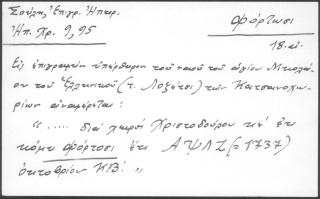 Σούλη, Ἐπιγρ. Ἠπειρ.
Ἠπ. Χρ. 9, 95
Φόρτωσι
18. αἰ.
Εἰς ἐπιγραφὴν ὑπέρθυρον τοῦ ναοῦ τοῦ ἁγίου Νικολά-
ου τοῦ Ἑλληνικοῦ (τ. Λοζέτσι) τῶν Κατσανοχω-
ρίων ἀναφέρεται:
"..... διὰ χειρὸς Χριστοδούρου κὲ ἐκ
κόμι φόρτοσι ἔτι ΑΨΛΖ (= 1737)
ὀκτοβρίου ΚΒ΄. "